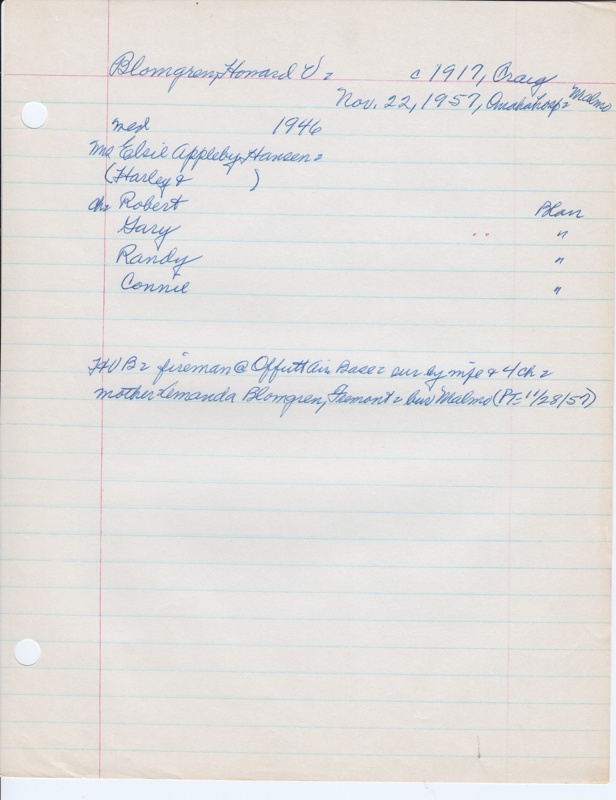 Blomgren, Howard V = c 1917, Craig
Nov. 22, 1957, Omaha Hosp = Malmo
med 1946
Mrs Elsie Appleby Hansen =
(Harley & )
ch = Robert Blair
Gary " "
Randy "
Connie "
HVB = fireman @ Offutt Air Base = sur by wife & 4 ch =
mother Amanda Blomgren, Fremont = bur Malmo (PT = 11/28/57)